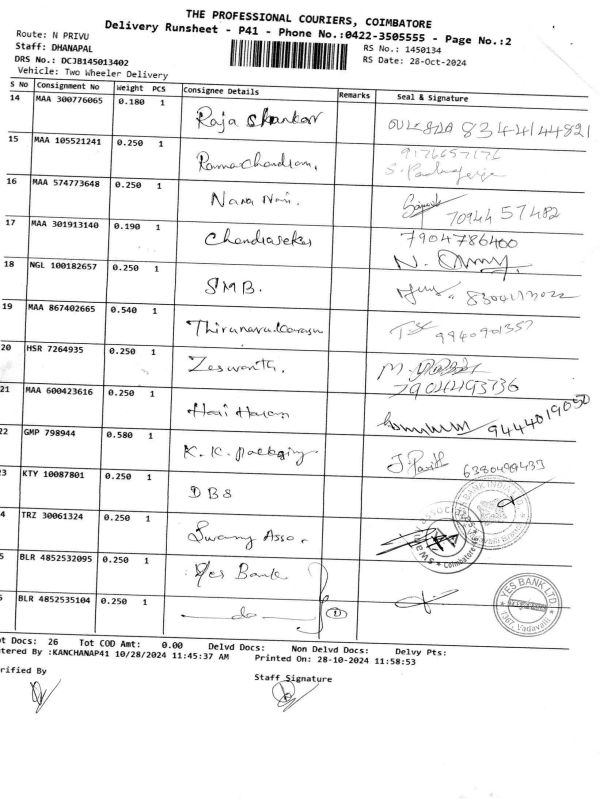 THE PROFESSIONAL COURIERS, COIMBATORE
Delivery Runsheet - P41 - Phone No.:0422-3505555 - Page No.:2
Route: N PRIVU
Staff: DHANAPAL
RS No.: 1450134
DRS No.: DCJB145013402
RS Date: 28-Oct-2024
Vehicle: Two Wheeler Delivery
S No Consignment No Weight PCS Consignee Details Remarks Seal & Signature
14 MAA 300776065 0.180 1 Raja Shankar 8344144821
15 MAA 105521241 0.250 1 Ramachandran. 9176657176
16 MAA 574773648 0.250 1 70944 57482
17 MAA 301913140 0.190 1 Chandrasekar 7904786400
18 NGL 100182657 0.250 1 SMB.
19 MAA 867402665 0.540 1 Thirunavukkarasu 9940901357
20 HSR 7264935 0.250 1 Zeswanth. 7904493736
21 MAA 600423616 0.250 1 Hari Haran 9444019050
22 GMP 798944 0.580 1 K. K. Packaging
3 KTY 10087801 0.250 1 DBS
BANK INDIA
4 TRZ 30061324 0.250 1 Swamy Asso.
Coimbatore
5 BLR 4852532095 0.250 1 Yes Bank
BLR 4852535104 0.250 1 do
YES BANK LTD.
Vadavalli
ot Docs: 26 Tot COD Amt: 0.00 Delvd Docs: Non Delvd Docs: Delvy Pts:
tered By :KANCHANAP41 10/28/2024 11:45:37 AM Printed On: 28-10-2024 11:58:53
rified By
Staff Signature